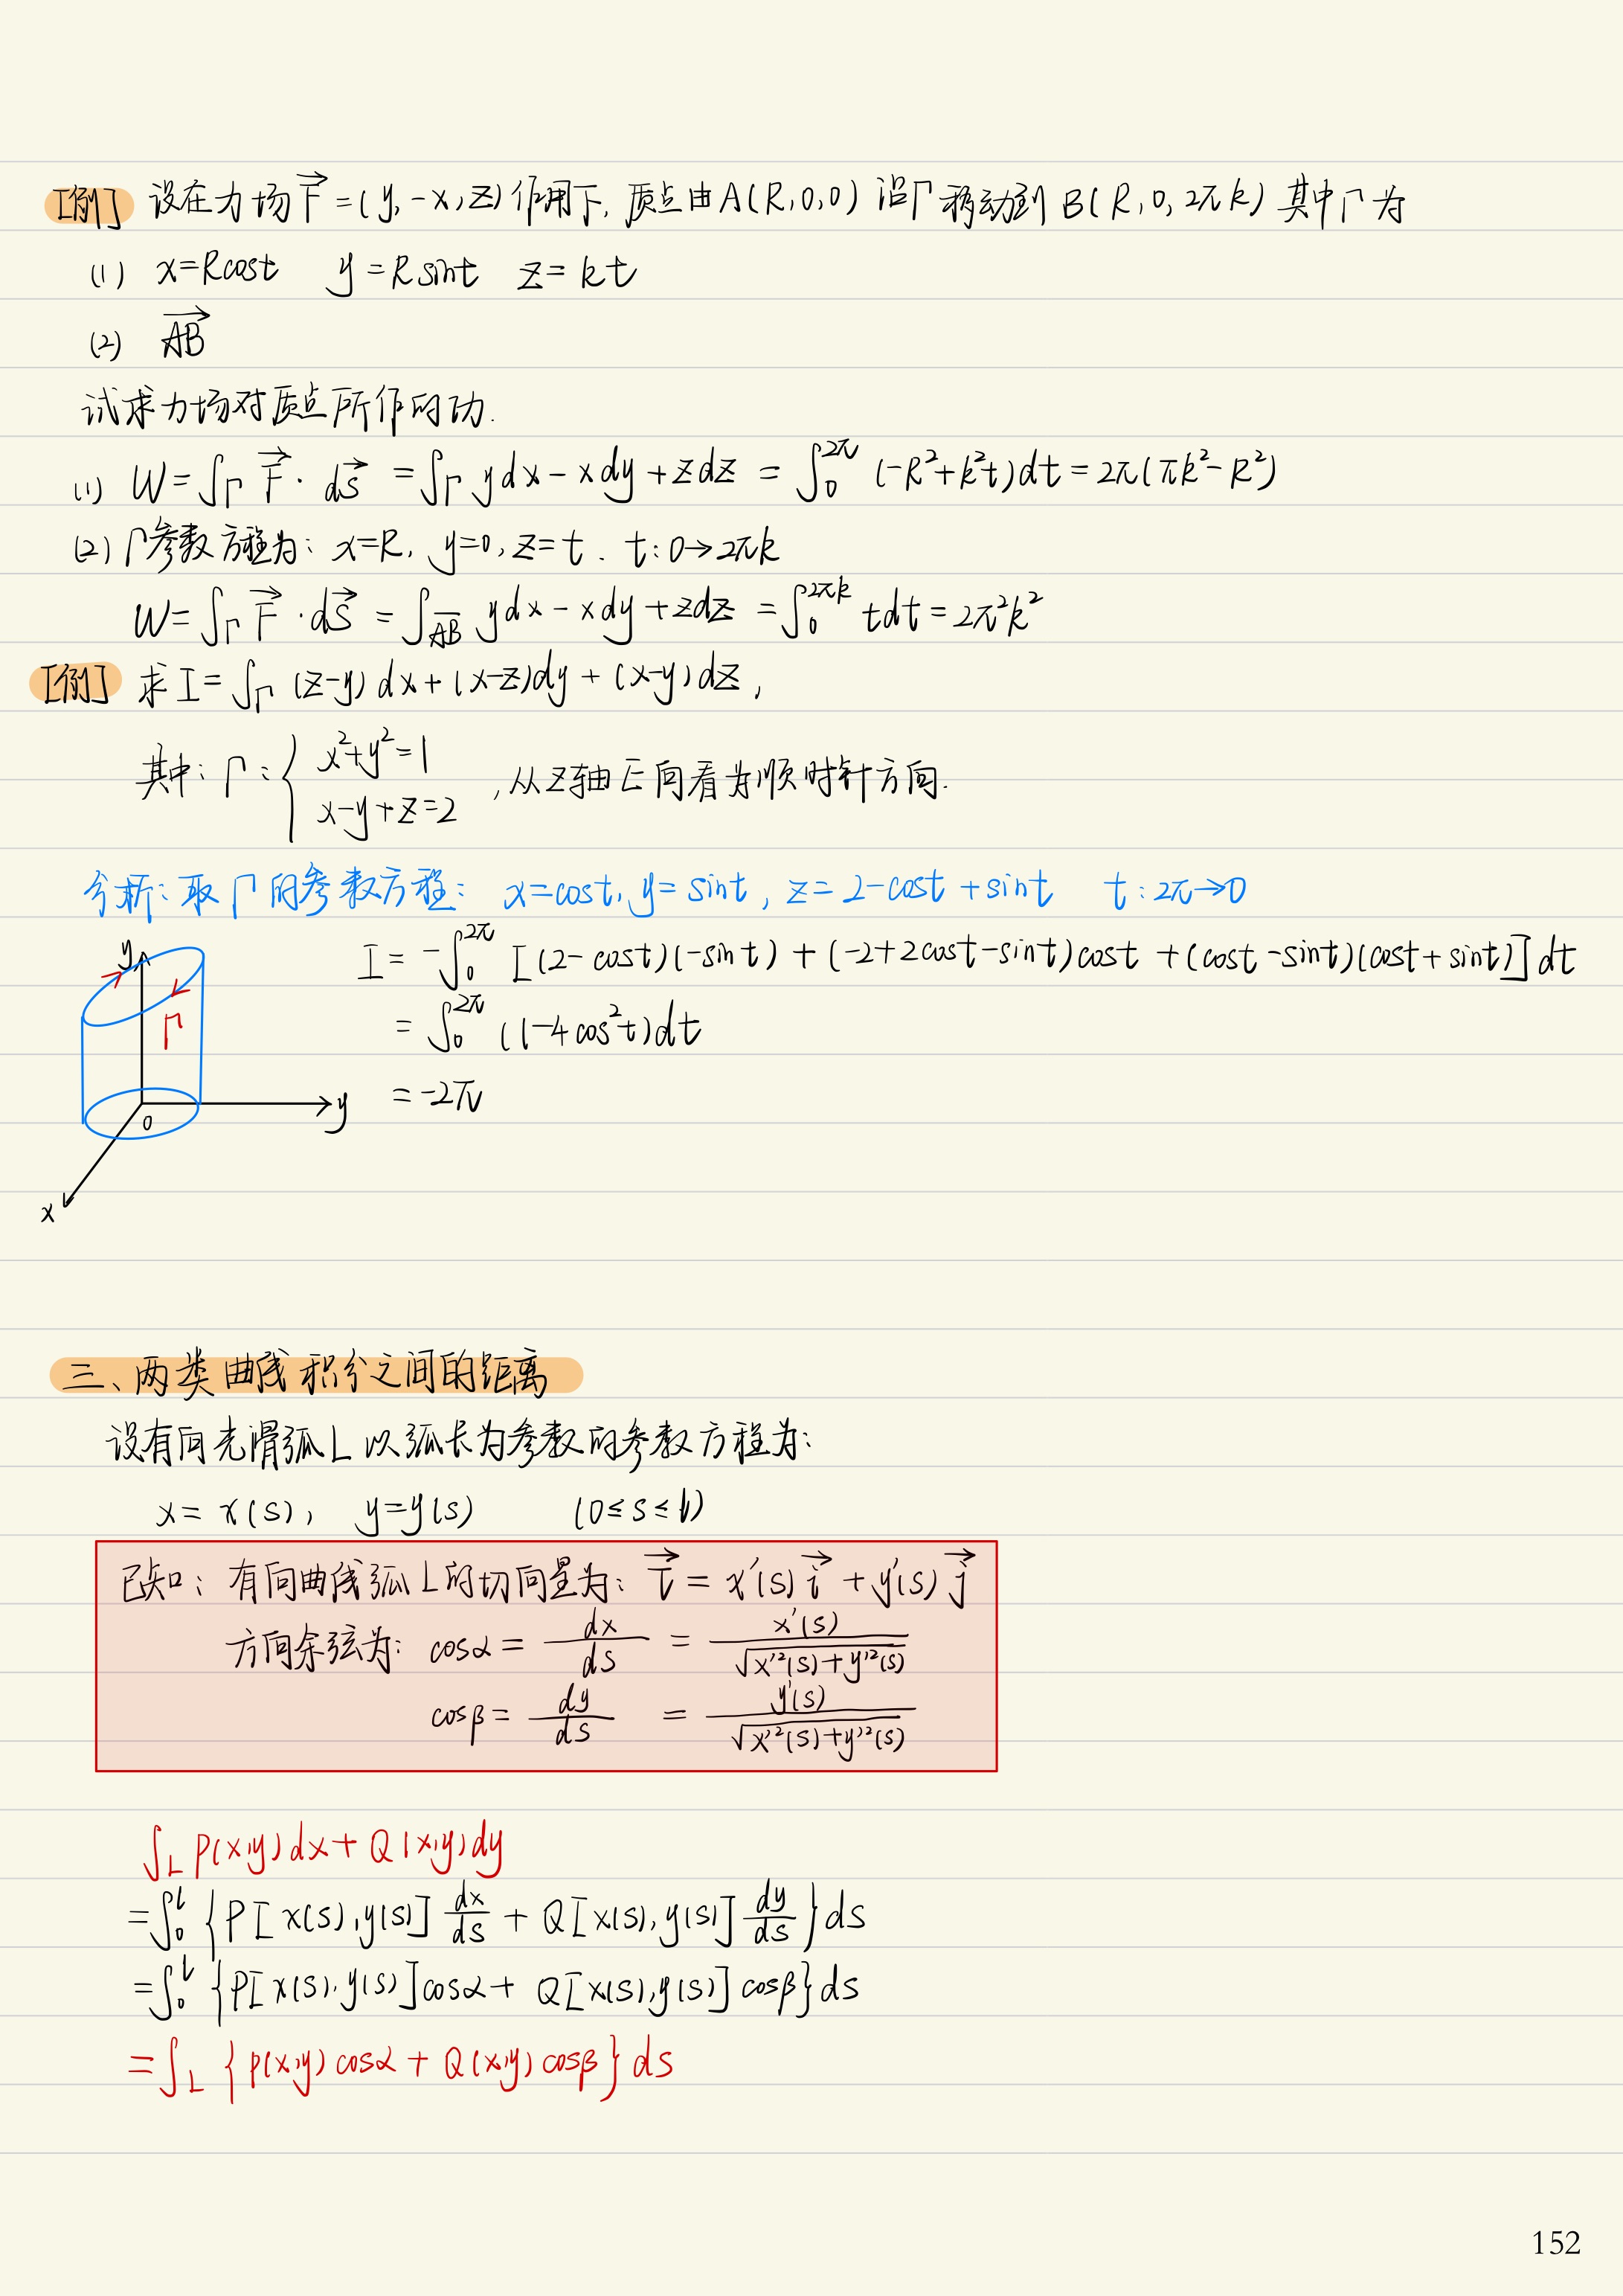 [例] 设在力场 F⃗=(y,-x,z)作用下, 质点由A(R,0,0) 沿Γ移动到 B(R,0,2πk) 其中Γ为
(1) x=Rcost y=Rsint z=kt
(2) A⃗B⃗
试求力场对质点所作的功.
(1) W=∫Γ F⃗·ds⃗ =∫Γ ydx-xdy+zdz = ∫₀^{2π} (-R²+k²t)dt=2π(πk²-R²)
(2) Γ参数方程为: x=R, y=0, z=t. t:0→2πk
W=∫Γ F⃗·ds⃗ =∫_{AB} ydx-xdy+zdz =∫₀^{2πk} tdt=2π²k²
[例] 求I=∫Γ (z-y)dx+(x-z)dy+(x-y)dz,
其中: Γ: { x²+y²=1
x-y+z=2 , 从z轴正向看为顺时针方向.
分析: 取Γ的参数方程: x=cost, y=sint, z=2-cost+sint t:2π→0
I=-∫₀^{2π} [(2-cost)(-sint)+(-2+2cost-sint)cost+(cost-sint)(cost+sint)]dt
=∫₀^{2π} (1-4cos²t)dt
=-2π
y
Γ
0
y
x
三、两类曲线积分之间的距离
设有向光滑弧L以弧长为参数的参数方程为:
x=x(s), y=y(s) (0≤s≤l)
已知: 有向曲线弧L的切向量为: τ⃗=x′(s)i⃗+y′(s)j⃗
方向余弦为: cosα=dx/ds=x′(s)/√(x′²(s)+y′²(s))
cosβ=dy/ds=y′(s)/√(x′²(s)+y′²(s))
∫_L P(x,y)dx+Q(x,y)dy
=∫₀^l {P[x(s),y(s)]dx/ds+Q[x(s),y(s)]dy/ds}ds
=∫₀^l {P[x(s),y(s)]cosα+Q[x(s),y(s)]cosβ}ds
=∫_L {P(x,y)cosα+Q(x,y)cosβ}ds
152